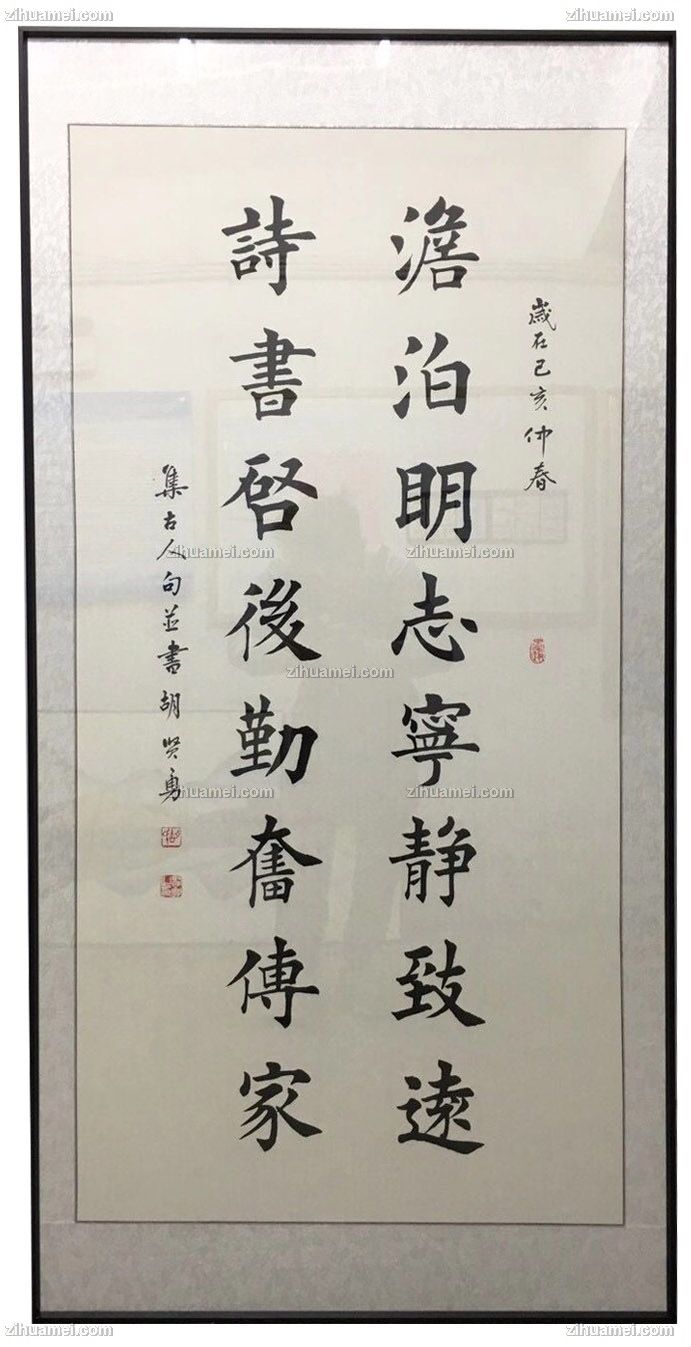 zihuamei.com zihuamei.com zihuamei.com
歲在己亥仲春
澹泊明志寧靜致遠
詩書啓後勤奮傳家
集古人句並書胡賢勇
zihuamei.com zihuamei.com
zihuamei.com
zihuamei.com zihuamei.com
zihuamei.com zihuamei.com zihuamei.com